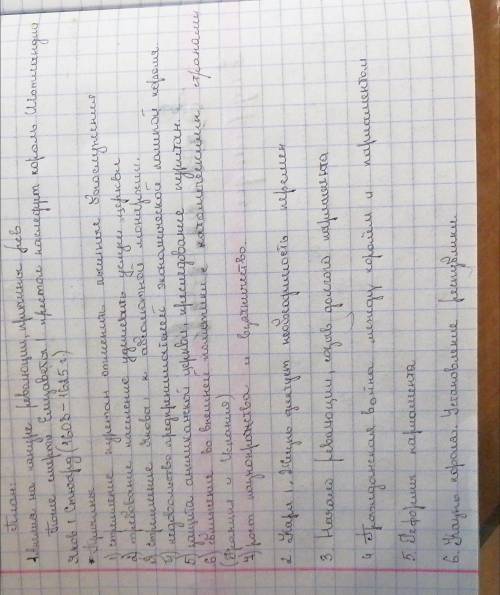 План:
1. Англия на кануне революции, причины рев.
После смерти Елизаветы I престол наследует король Шотландии
Яков I Стюард (1603-1625г)
* Причины
1) стремление пуритан отменить пышное богослужение
2) требование населению удешевить услуги церкви
3) стремление Якова I к абсолютной монархии.
4) недовольство предпринимателей экономической полит-кой короля.
5) защита англиканской церкви, преследование пуритан.
6) сближение во внешней политике с католическими странами
(Франция и Испания)
7) рост казнокрадства и взяточничества.
2. Карл I. Жизнь диктует необходимость перемен
3 Начало революции созыв долгого парламента
4 Гражданская война между королём и парламентом
5 Реформы парламента
6. Казнь короля. Установление республики.